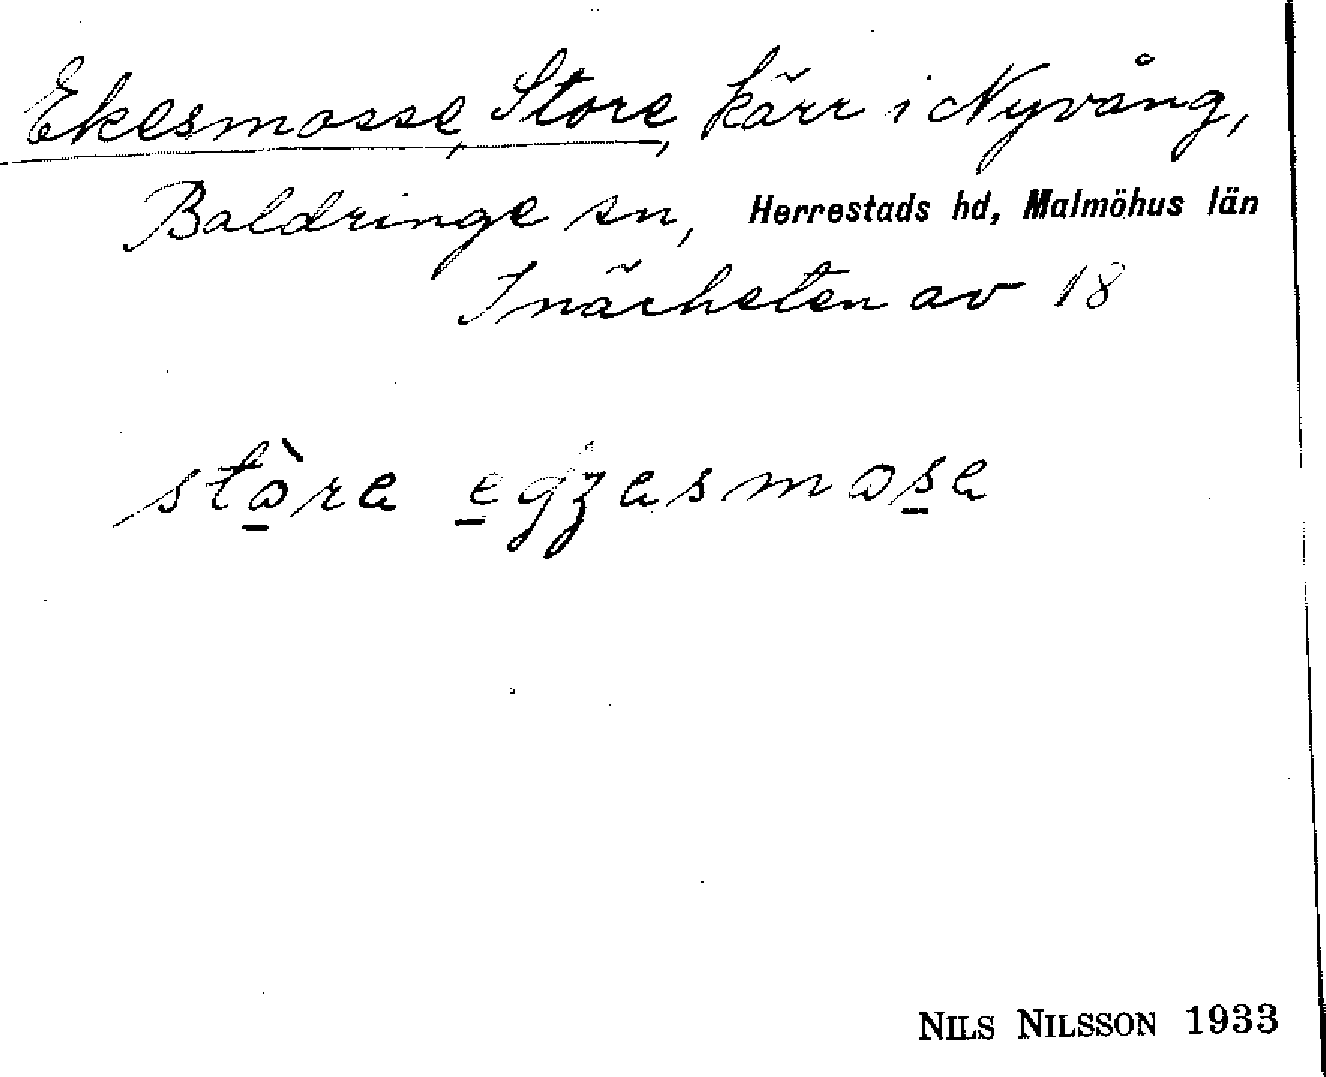 Ekesmosse, Store, kärr i Nyvång,
Baldringe sn, Herrestads hd, Malmöhus län
I närheten av 18
stòra egzasmosa
NILS NILSSON 1933